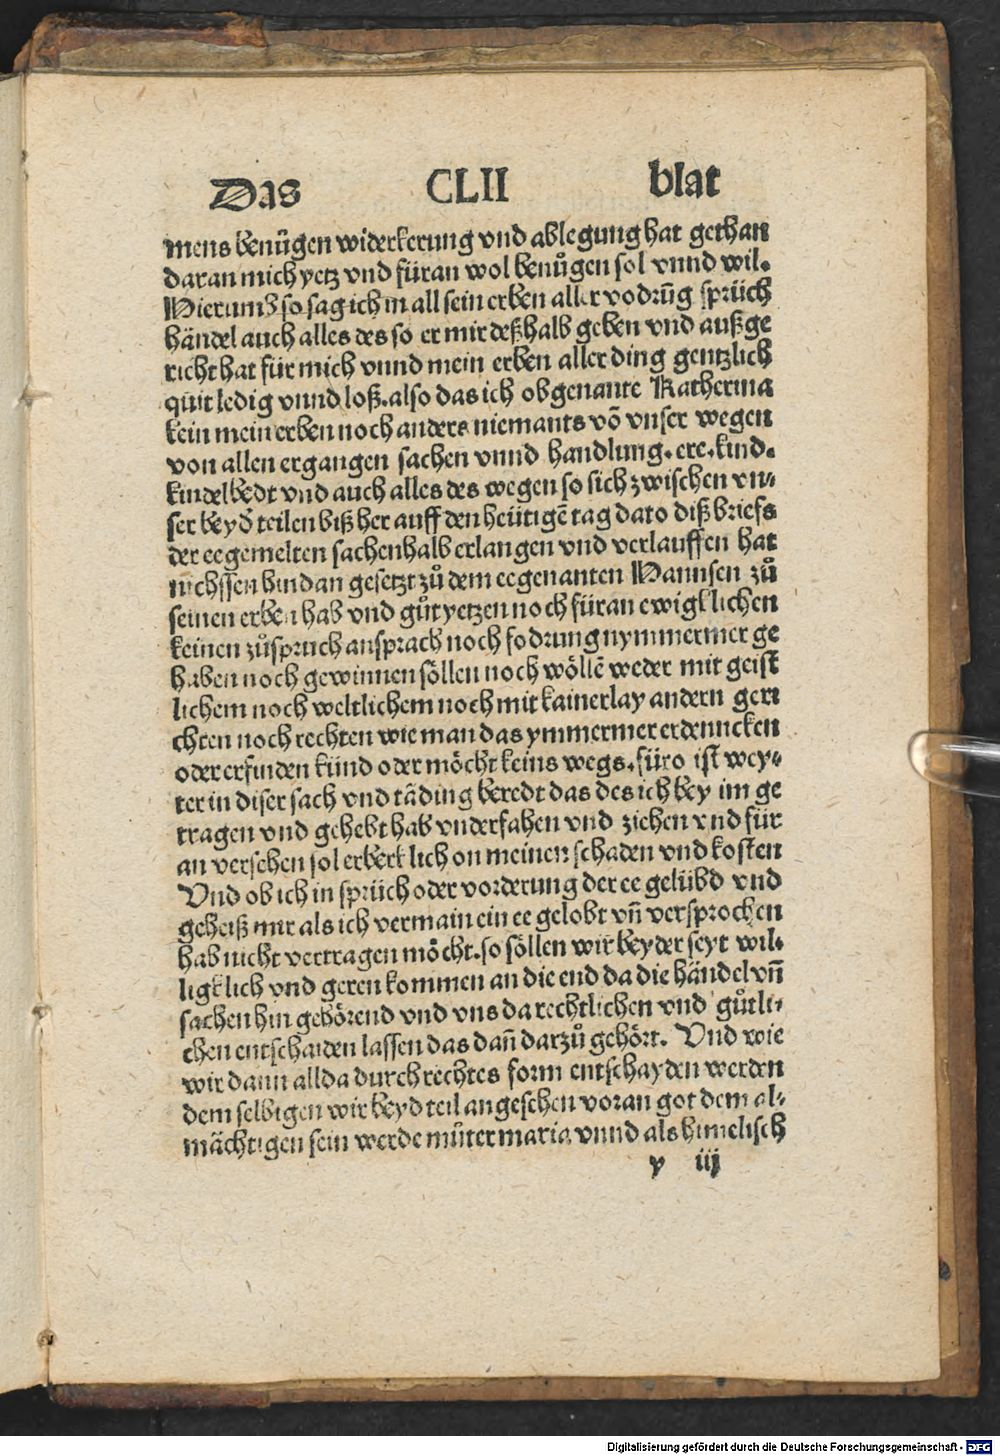 Das CLII blat
mens benuͤgen widerkerung vnd ablegung hat gethan
daran mich yetz vnd füran wol benuͤgen sol vnnd wil.
Hierumb so sag ich in all sein erben aller vodrūg sprüch
händel auch alles des so er mir deßhalb geben vnd außge
richt hat für mich vnnd mein erben aller ding gentzlich
quit ledig vnnd loß. also das ich obgenante Katherina
kein mein erben noch anders niemants vō vnser wegen
von allen ergangen sachen vnnd handlung. ere. kind.
kindelbedt vnd auch alles des wegen so sich zwischen vn⸗
ser beyd teilen biß her auff den heütigē tag dato diß briefs
der eegemelten sachenhalb erlangen vnd verlauffen hat
nichssen hindan gesetzt zuͦ dem eegenanten Hannsen zuͦ
seinen erben hab vnd guͦt yetzen noch füran ewigklichen
keinen zuͦspruch ansprach noch fodrung nymmermer ge
haben noch gewinnen söllen noch wöllē weder mit geist
lichem noch weltlichem noch mit kainerlay andern geri
chten noch rechten wie man das ymmermer erdenncken
oder erfinden künd oder möcht keins wegs. füro ist wey⸗
ter in diser sach vnd tāding beredt das des ich bey im ge
tragen vnd gehebt hab vnderfahen vnd ziehen vnd für
an versehen sol erberklich on meinen schaden vnd kosten
Vnd ob ich in sprüch oder vorderung der ee gelübd vnd
geheiß mir als ich vermain ein ee gelobt vn̄ versprochen
hab nicht vertragen möcht. so söllen wir beyder seyt wil⸗
ligklich vnd geren kommen an die end da die händel vn̄
sachen hin gehörend vnd vns da rechtlichen vnd guͤtli⸗
chen entschaiden lassen das dan̄ darzuͦ gehört. Vnd wie
wir dann allda durch rechtes form entschayden werden
dem selbigen wir beyd teil angesehen voran got dem al⸗
mächtigen sein werde muͦter maria vnnd als himelisch
y iij
Digitalisierung gefördert durch die Deutsche Forschungsgemeinschaft - DFG